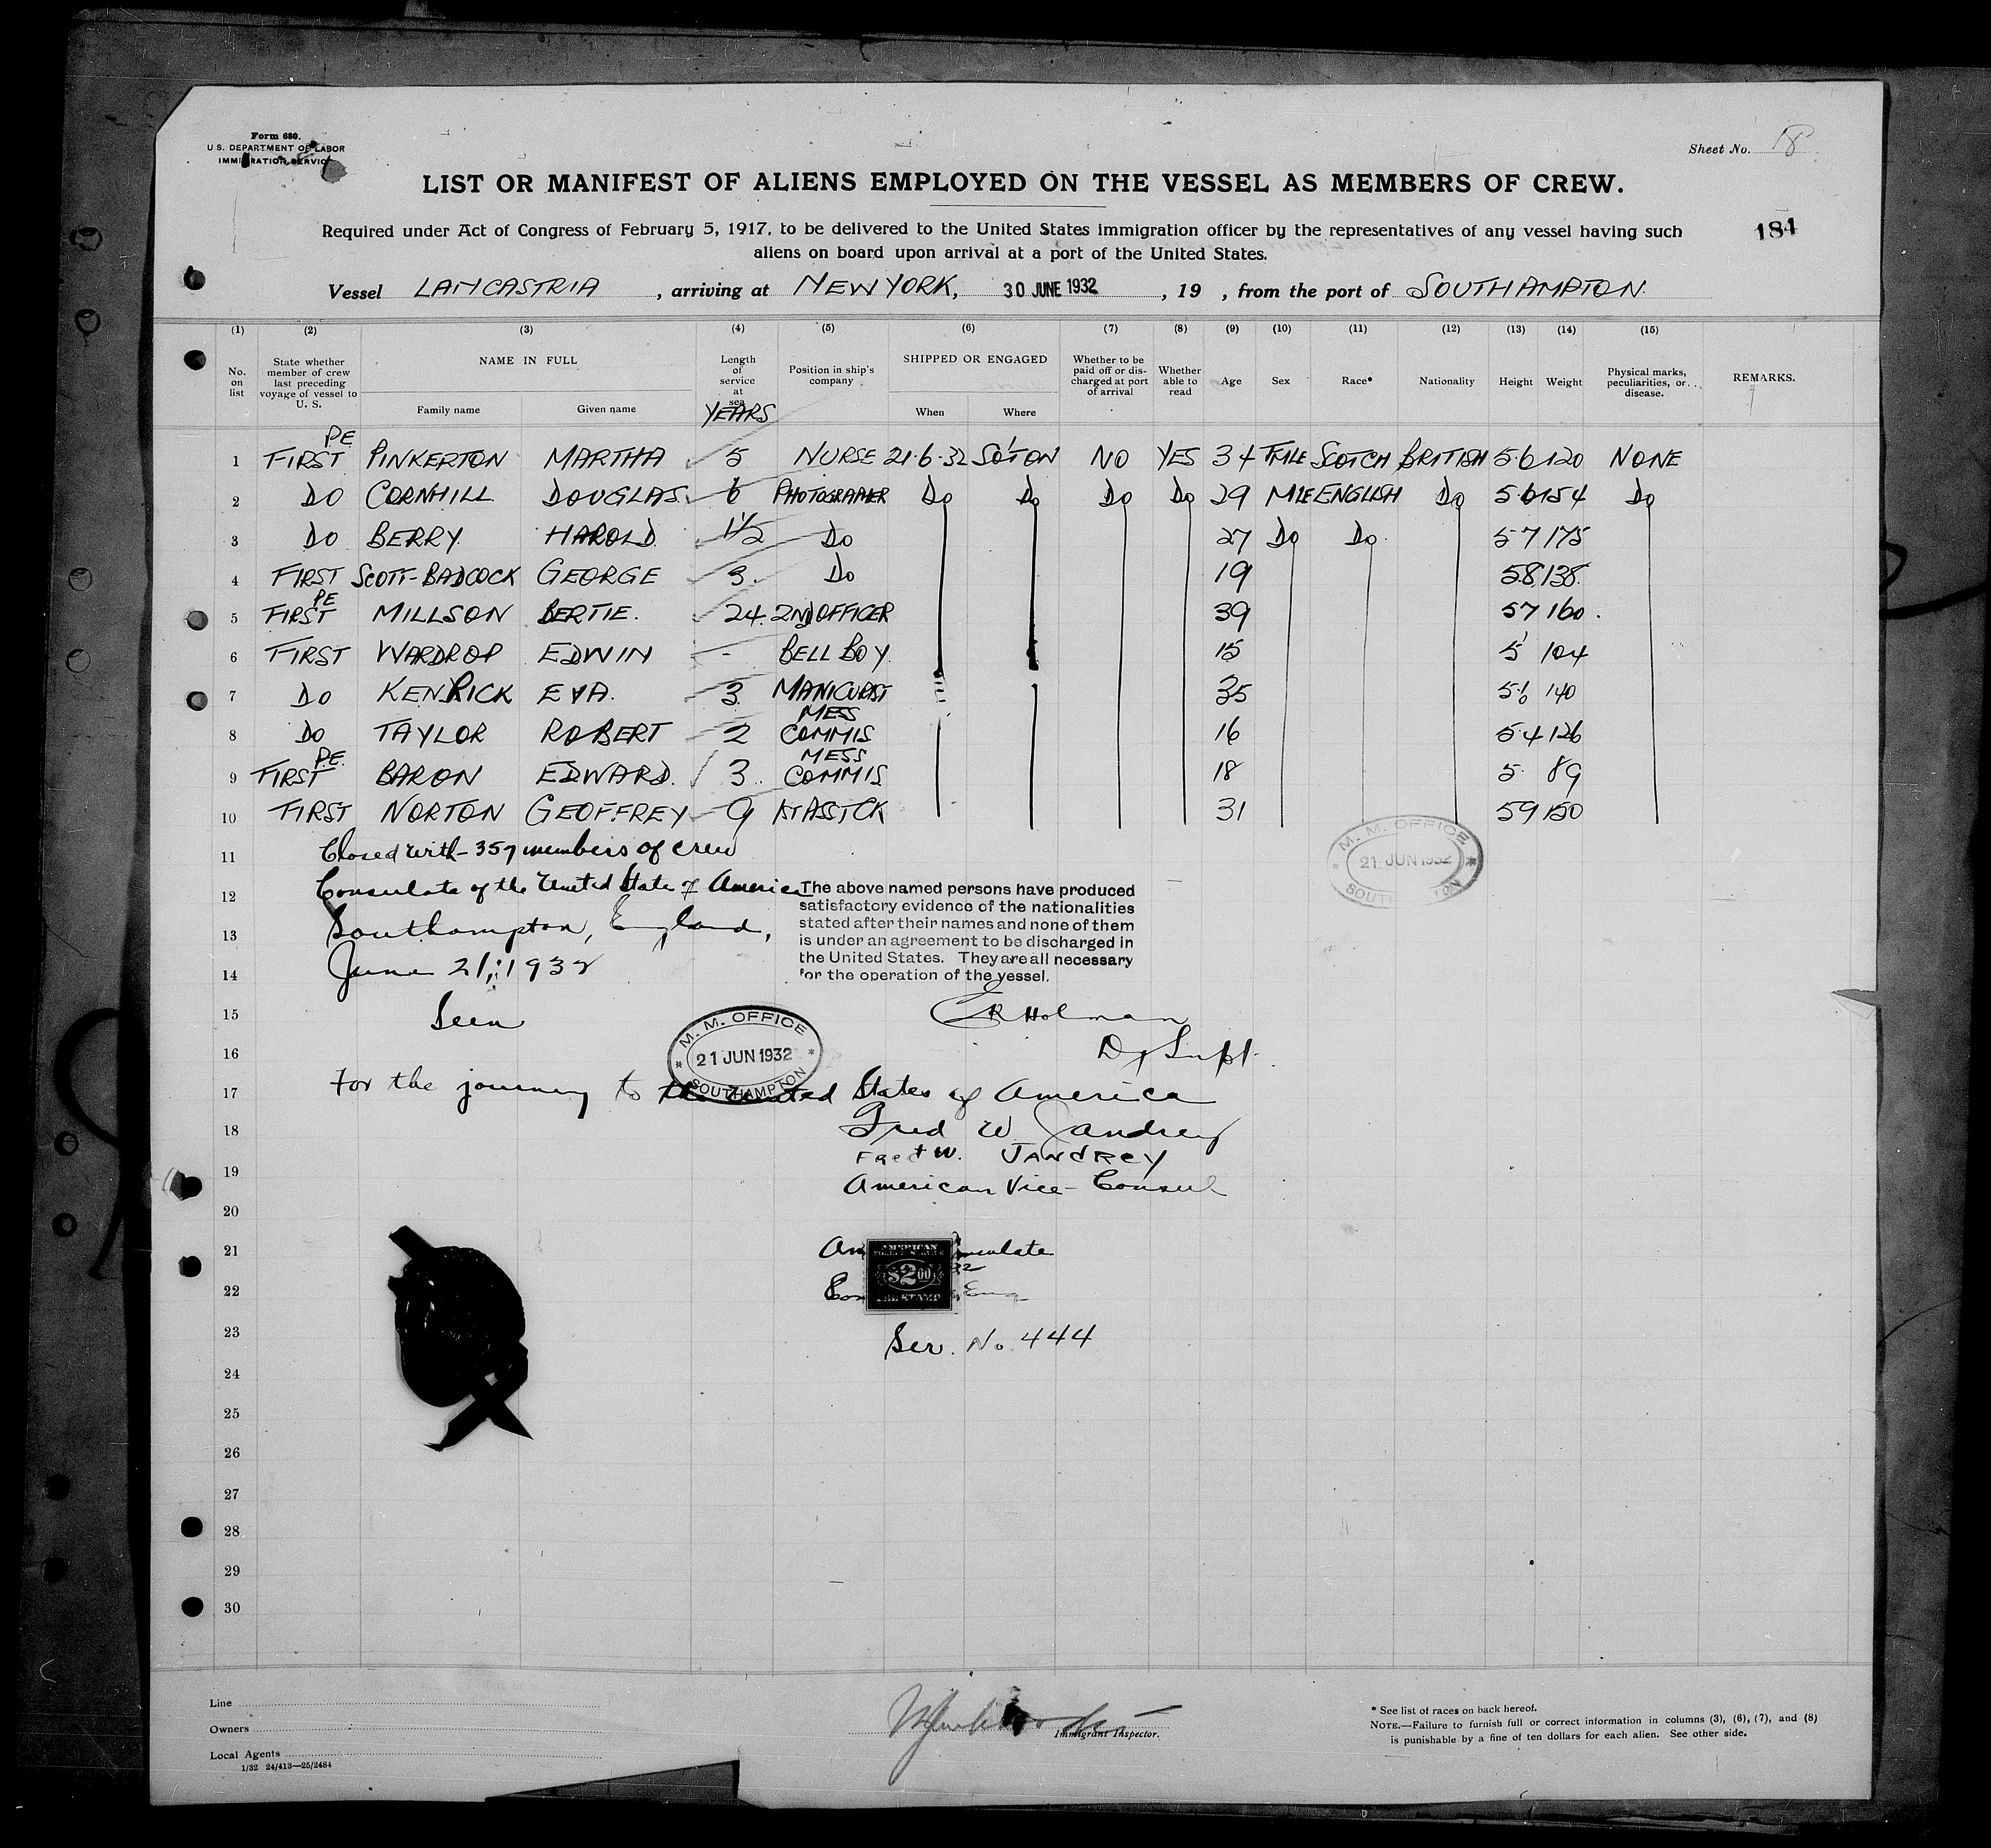 Form 680.
U.S. DEPARTMENT OF LABOR
IMMIGRATION SERVICE
Sheet No. 18
LIST OR MANIFEST OF ALIENS EMPLOYED ON THE VESSEL AS MEMBERS OF CREW.
184
Required under Act of Congress of February 5, 1917, to be delivered to the United States immigration officer by the representatives of any vessel having such
aliens on board upon arrival at a port of the United States.
Vessel LANCASTRIA, arriving at NEW YORK, 30 JUNE 1932, 19 , from the port of SOUTHAMPTON
(1) (2) (3) (4) (5) (6) (7) (8) (9) (10) (11) (12) (13) (14) (15)
No. on list State whether member of crew last preceding voyage of vessel to U. S. NAME IN FULL Family name Given name Length of service at sea YEARS Position in ship's company SHIPPED OR ENGAGED When Where Whether to be paid off or discharged at port of arrival Whether able to read Age Sex Race* Nationality Height Weight Physical marks, peculiarities, or disease. REMARKS.
1 FIRST PE PINKERTON MARTHA 5 NURSE 21.6.32 SO'TON NO YES 34 FMLE SCOTCH BRITISH 5.6 120 NONE
2 DO CORNHILL DOUGLAS. 6 PHOTOGRAPHER DO DO DO DO 29 MLE ENGLISH DO 5.6 154 DO
3 DO BERRY HAROLD 1½ DO 27 DO DO 5 7 175
4 FIRST SCOTT-BADCOCK GEORGE 3 DO 19 5.8 138
5 FIRST PE MILLSON BERTIE. 24 2ND OFFICER 39 5 7 160
6 FIRST WARDROP EDWIN - BELL BOY 15 5' 104
7 DO KENRICK EVA. 3 MANICURIST 35 5.6 140
8 DO TAYLOR ROBERT 2 MESS COMMIS 16 5.4 126
9 FIRST P.E. BARON EDWARD. 3 MESS COMMIS 18 5. 89
10 FIRST NORTON GEOFFREY 9 31 5 9 150
11 Closed with - 357 members of crew
12 Consulate of the United State of America
13 Southampton, England,
14 June 21, 1932
The above named persons have produced
satisfactory evidence of the nationalities
stated after their names and none of them
is under an agreement to be discharged in
the United States. They are all necessary
for the operation of the vessel.
M. M. OFFICE
21 JUN 1932
SOUTHAMPTON
15 Seen Holman
16 Dy Supt.
M. M. OFFICE
21 JUN 1932
SOUTHAMPTON
17 For the journey to the United States of America
18 Fred W. Jandrey
19 Fred W. JANDREY
American Vice-Consul
20
21 AMERICAN
$2.00
FEE STAMP
22
23 Ser. No. 444
24
25
26
27
28
29
30
Line
Owners
Local Agents
1/32 24/413—25/2484
Immigrant Inspector.
* See list of races on back hereof.
NOTE.—Failure to furnish full or correct information in columns (3), (6), (7), and (8)
is punishable by a fine of ten dollars for each alien. See other side.